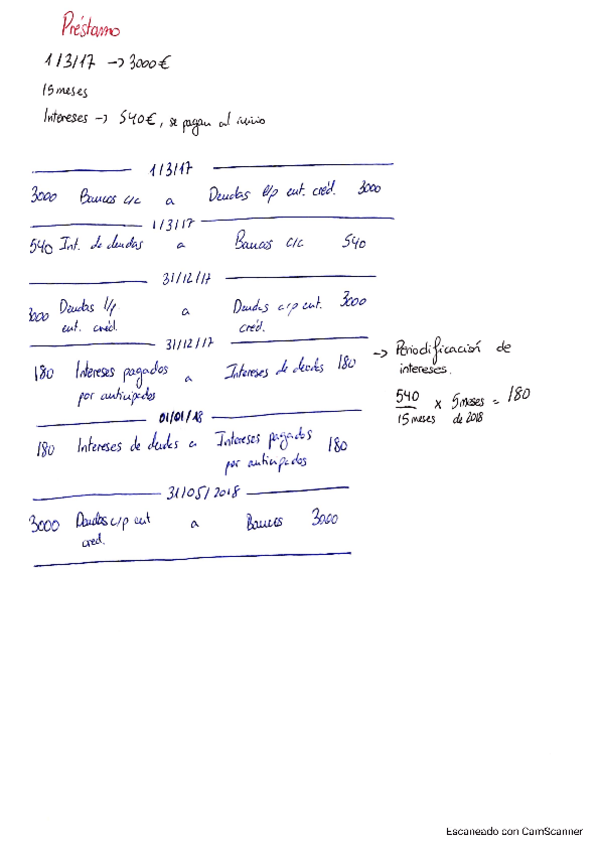 Préstamo
1/3/17 → 3000€
15 meses
Intereses → 540€, se pagan al inicio
1/3/17
3000 Bancos c/c a Deudas l/p ent. créd. 3000
1/3/17
540 Int. de deudas a Bancos c/c 540
31/12/17
3000 Deudas l/p a Deudas c/p ent. 3000
ent. créd. créd.
31/12/17
180 Intereses pagados a Intereses de deudas 180
por anticipados
→ Periodificación de
intereses.
540 x 5 meses = 180
15 meses de 2018
01/01/18
180 Intereses de deudas a Intereses pagados 180
por anticipados
31/05/2018
3000 Deudas c/p ent a Bancos 3000
cred.
Escaneado con CamScanner